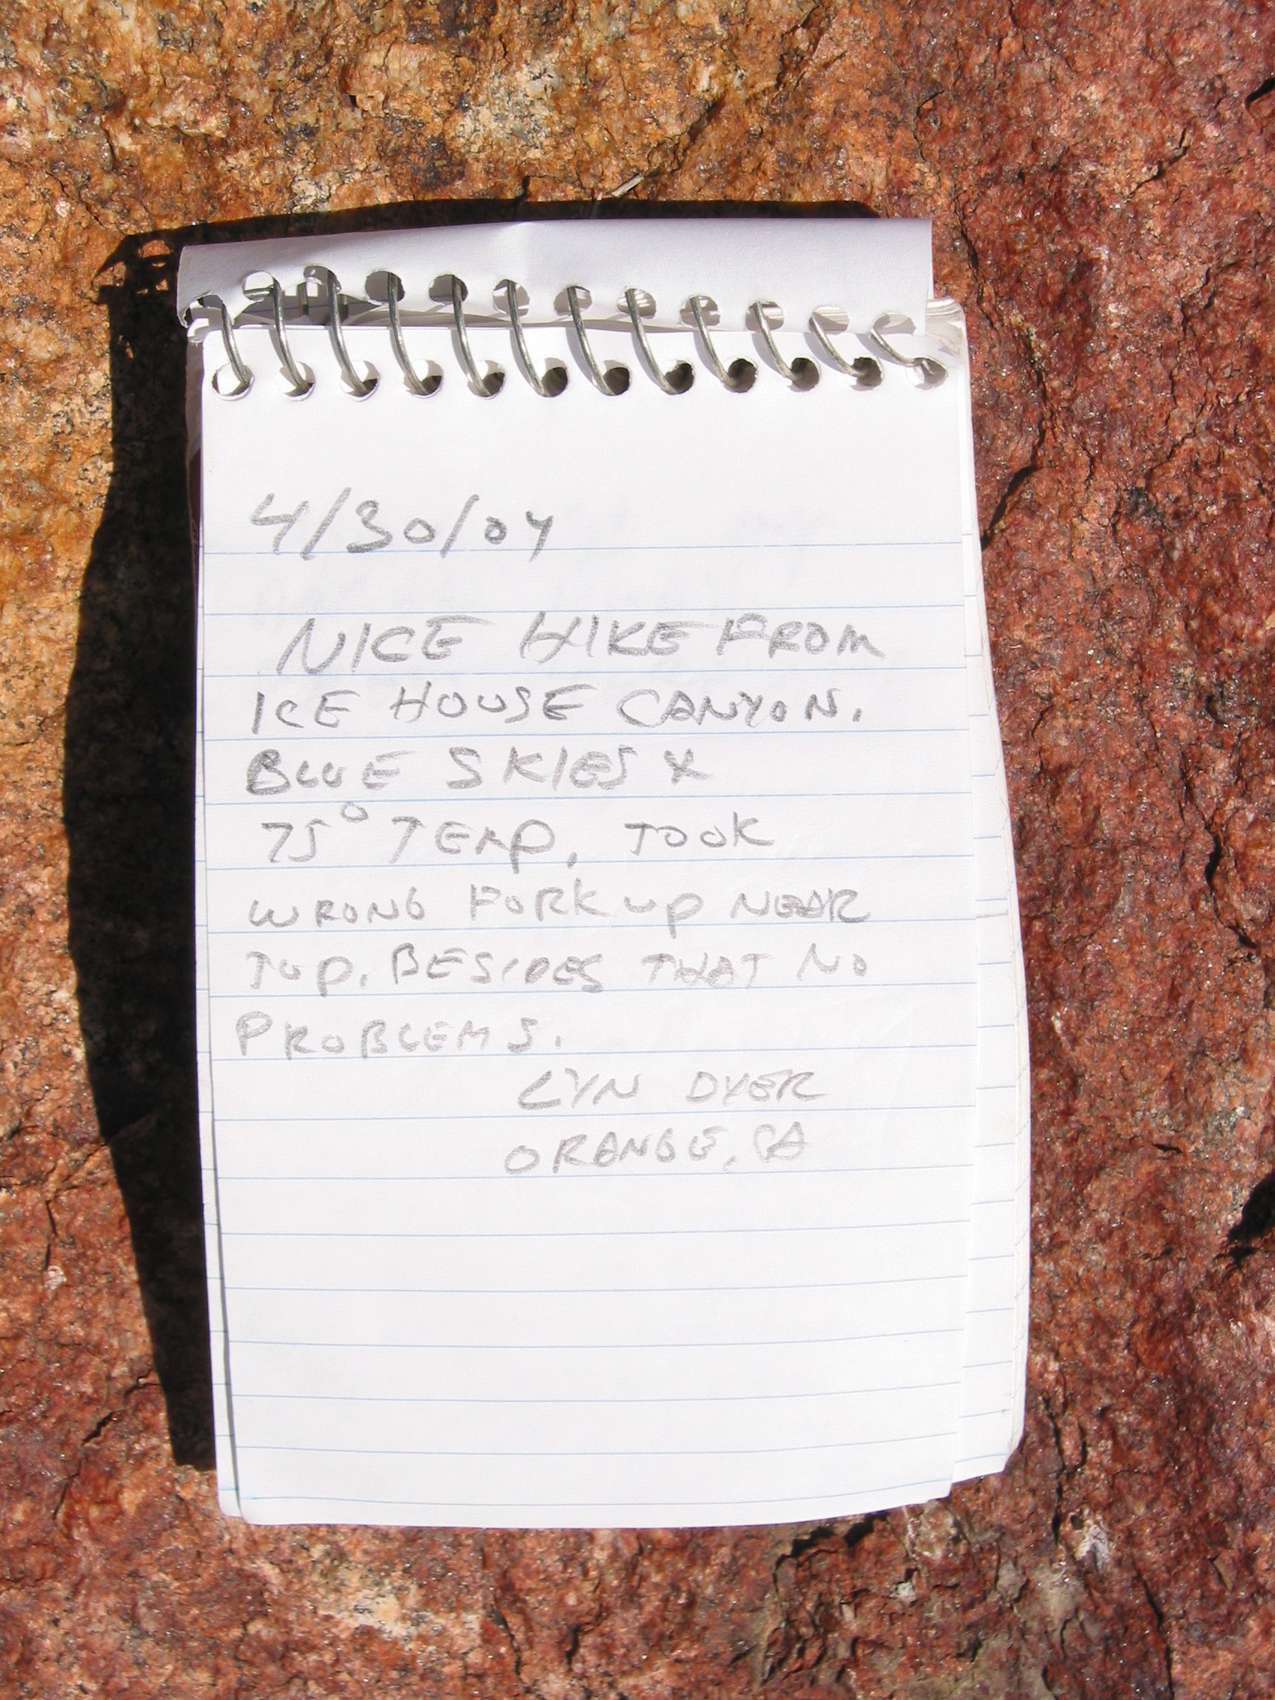 4/30/04
NICE HIKE FROM
ICE HOUSE CANYON.
BLUE SKIES &
75° TEMP. TOOK
WRONG FORK UP NEAR
TOP. BESIDES THAT NO
PROBLEMS.
LYN DYER
ORANGE, CA